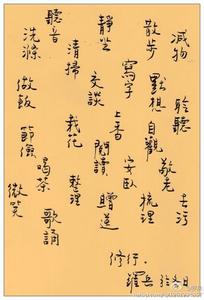 减物
聆聽
去污
散步
默想
自觀
敬老
梳理
靜坐
寫字
上香
安臥
閱讀
贈送
聽音
清掃
交談
栽花
整理
歌誦
洗滌
做飯
節儉
喝茶
微笑
修行.